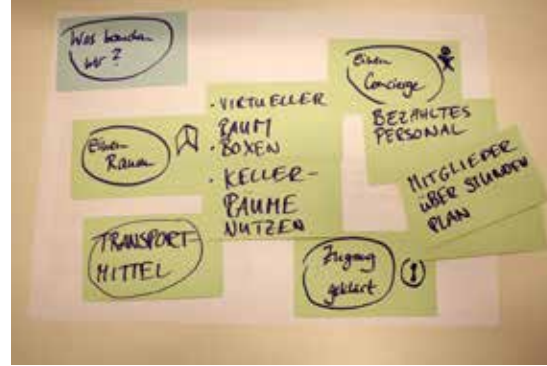 Was brauchen
wir?
Einen
Raum
• VIRTUELLER
RAUM
• BOXEN
• KELLER-
RÄUME
NUTZEN
TRANSPORT-
MITTEL
Einen
Concierge
BEZAHLTES
PERSONAL
MITGLIEDER
ÜBER STUNDEN
PLAN
Zugang
geklärt
!